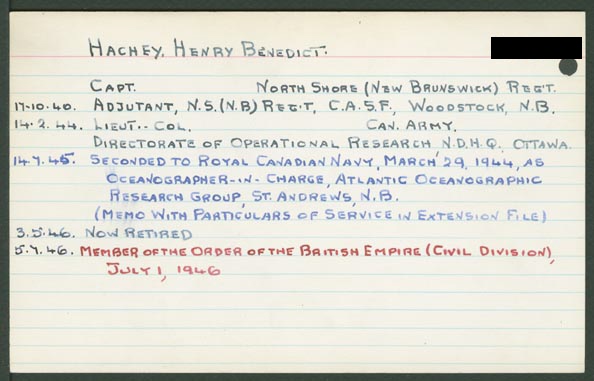 HACHEY, HENRY BENEDICT.
CAPT. NORTH SHORE (NEW BRUNSWICK) REG'T.
17.10.40. ADJUTANT, N.S.(N.B) REG'T, C.A.S.F., WOODSTOCK, N.B.
14.2.44. LIEUT.-COL. CAN. ARMY.
DIRECTORATE OF OPERATIONAL RESEARCH, N.D.H.Q. OTTAWA.
14.7.45. SECONDED TO ROYAL CANADIAN NAVY, MARCH 29, 1944, AS
OCEANOGRAPHER-IN-CHARGE, ATLANTIC OCEANOGRAPHIC
RESEARCH GROUP, ST. ANDREWS, N.B.
(MEMO WITH PARTICULARS OF SERVICE IN EXTENSION FILE)
3.5.46. NOW RETIRED
5.7.46. MEMBER OF THE ORDER OF THE BRITISH EMPIRE (CIVIL DIVISION),
JULY 1, 1946